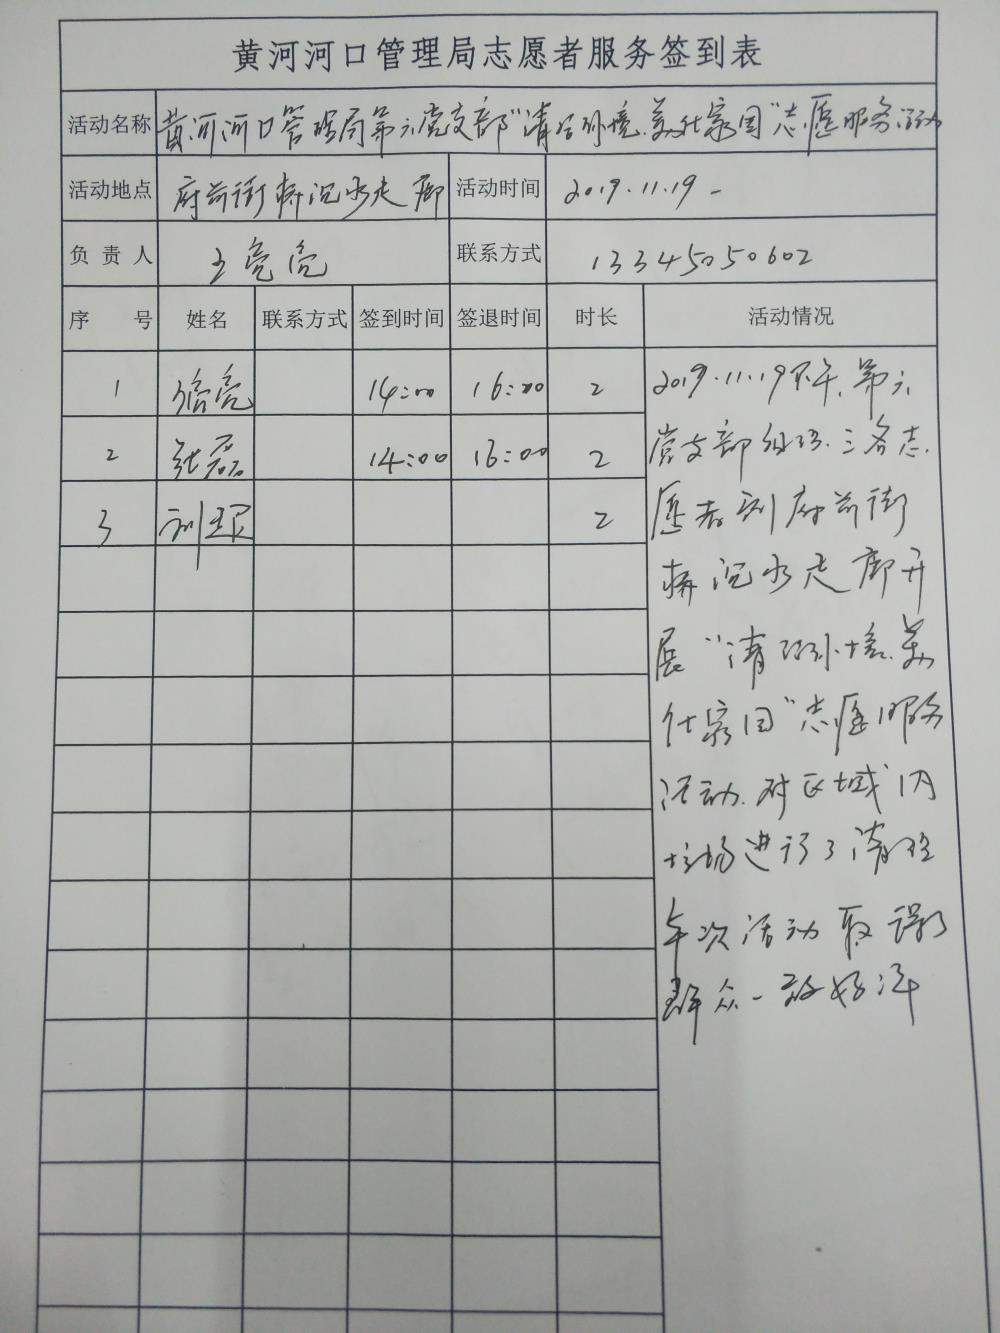 黄河河口管理局志愿者服务签到表
活动名称 黄河河口管理局第六党支部"清洁环境、美化家园"志愿服务活动
活动地点 府前街 水走廊 活动时间 2019.11.19
负责人 王亮亮 联系方式 13345050602
序号 姓名 联系方式 签到时间 签退时间 时长 活动情况
1 亮 14:00 16:00 2
2 张磊 14:00 16:00 2
3 刘 2
2019.11.19下午,第六
党支部组织三名志
愿者到府前街
水走廊开
展"清洁环境、美
化家园"志愿服务
活动.对区域内
垃圾进行了清理
本次活动取得了
群众一致好评